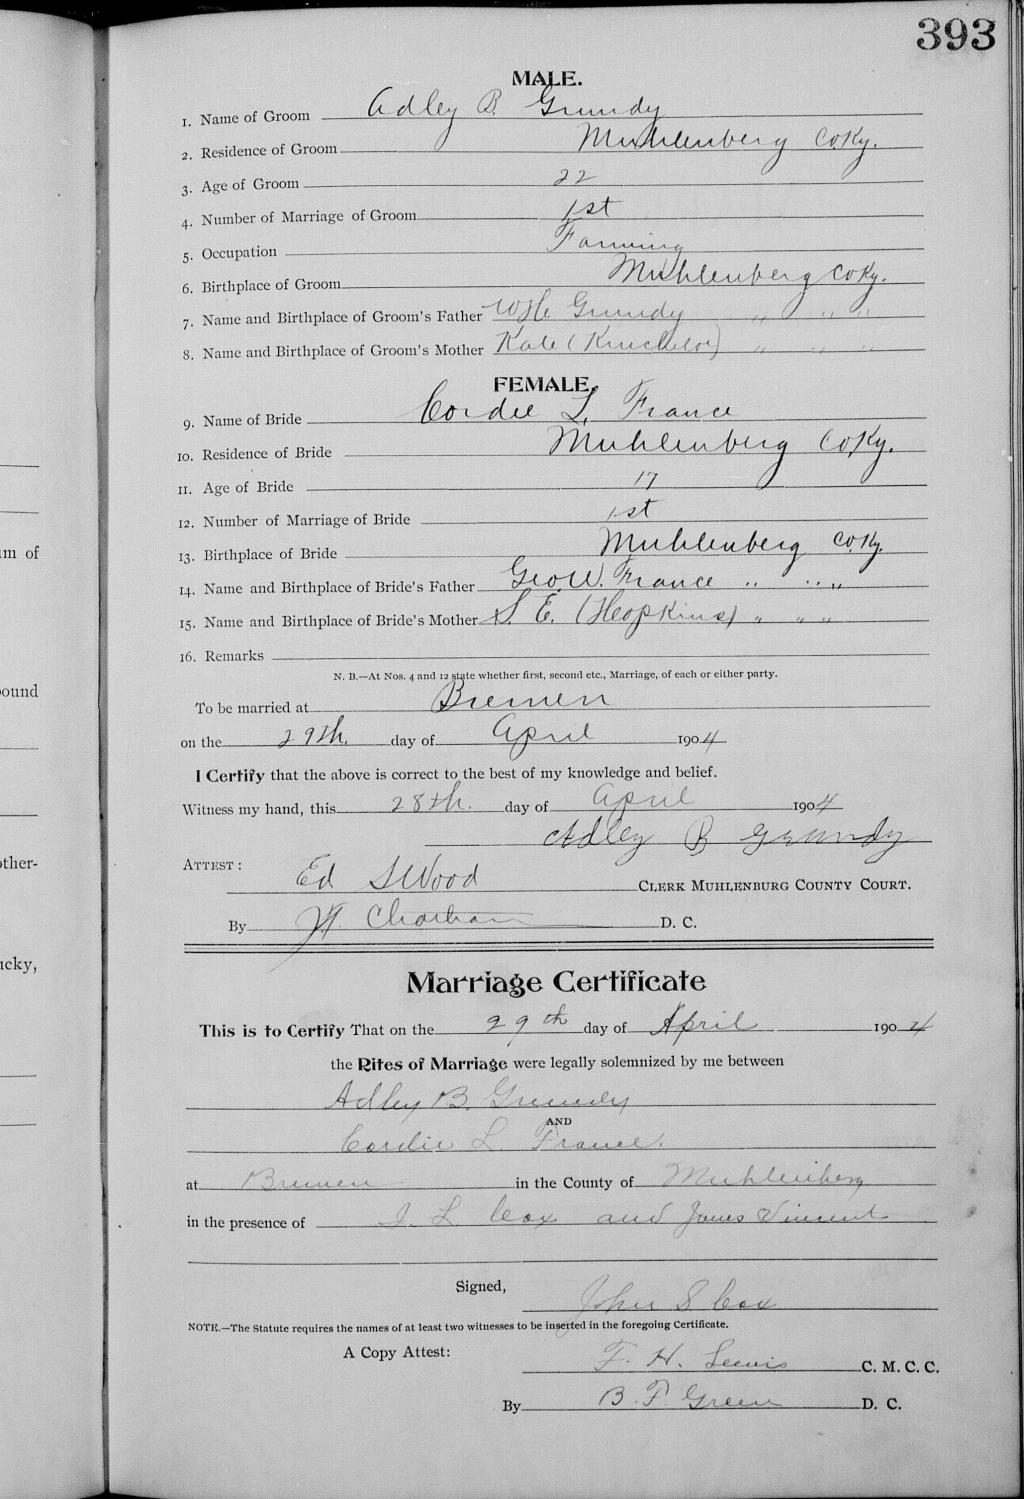 393
MALE.
1. Name of Groom Adley B. Grundy
2. Residence of Groom Muhlenberg Co Ky.
3. Age of Groom 22
4. Number of Marriage of Groom 1st
5. Occupation Farming
6. Birthplace of Groom Muhlenberg Co Ky.
7. Name and Birthplace of Groom's Father W H. Grundy " " "
8. Name and Birthplace of Groom's Mother Kate (Kincheloe) " " "
FEMALE.
9. Name of Bride Cordie L. France
10. Residence of Bride Muhlenberg Co Ky.
11. Age of Bride 17
12. Number of Marriage of Bride 1st
13. Birthplace of Bride Muhlenberg Co. Ky.
14. Name and Birthplace of Bride's Father Geo. W. France " " "
15. Name and Birthplace of Bride's Mother S. E. (Hopkins) " " "
16. Remarks
N. B.—At Nos. 4 and 12 state whether first, second etc., Marriage, of each or either party.
To be married at Bremen
on the 29th. day of April 1904
I Certify that the above is correct to the best of my knowledge and belief.
Witness my hand, this 28th. day of April 1904
Adley B Grundy
ATTEST: Ed S Wood CLERK MUHLENBURG COUNTY COURT.
By D. C.
Marriage Certificate
This is to Certify That on the 29th day of April 1904
the Rites of Marriage were legally solemnized by me between
Adley B. Grundy
AND
Cordie L. France.
at Bremen in the County of Muhlenberg
in the presence of J. L. Cox and James Vincent
Signed, John S Cox
NOTE.—The Statute requires the names of at least two witnesses to be inserted in the foregoing Certificate.
A Copy Attest: F. H. Lewis C. M. C. C.
By B. F. Green D. C.
um of
ound
other-
ucky,